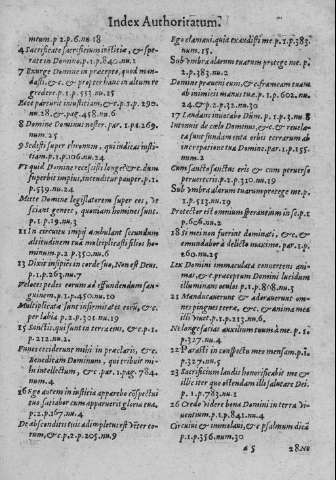 Index Authoritatum.
meum. p 2. p.6. nu 18
4 Sacrificate sacrificium iustitiæ, & spe-
rate in Domino. p.1. p.840. nu.1
7 Exurge Domine in præcepto, quod man-
dasti, &c. & propter hanc in altum re
gredere. p.1. p.553. nu.25
Ecce parturit iniustitiam, &c. p.1. p. 290.
nu.28. & pag.458. nu.6
8 Domine Dominus noster. par.1. p.269.
num.25
9 Sedisti super thronum, qui iudicas iusti-
tiam. p.1. p.106. nu.24
Vt quid Domine recessisti longe? &c. dum
superbit impius, incenditur pauper. p.1.
p.539. nu.24
Metto Domine legislatorem super eos, vt
sciant gentes, quoniam homines sunt.
p.1. p.19. nu.3
11 In circuitu impij ambulant secundum
altitudinem tuā multiplicasti filios ho-
minum. p.2. p.350. nu.6
13 Dixit insipiens in corde suo, Non est Deus.
p.1. p.263. nu.7
Veloces pedes eorum ad effundendum san-
guinem. p.1. p.450. nu.10
Multiplicatæ sunt infirmitates eorū, &c.
per labia p.2. p.301. nu.19
15 Sanctis. qui sunt in terra eius, &c. p.1.
p.212. nu.2.
Funes ceciderunt mihi in præclaris, &c.
Benedicam Dominum, qui tribuit mi-
hi intellectum, &c par .1. pag.784.
num.4
16 Ego autem in iustitia apparebo cōspectui
tuo satiabor cum apparuerit gloria tua.
p.2. p.167. nu.4
De absconditis tuis adimpletus est venter eo-
rum, &c. p.2. p.205. nu.9
Ego clamaui, quia exaudisti me. p.1. p.383.
num.15.
Sub vmbra alarum tuarum protege me. p.
2. p.383. nu.2
Domine præueni eum, &c. frameam tuam
ab inimicis manus tuæ. p.1. p.602. nu.
24. & p.2. p.32. nu.30
17 Laudans inuocabo Dūm. p.1. p.3. nu.8
Intonuit de cœlo Dominus, &c. & reuela-
ta sunt fundamenta orbis terrarum ab
increpatione tua Domine. par.1. p.155.
num.2
Cum sancto sanctus eris & cum peruerso
peruerteris. p.1. p.310. nu.19
Sub vmbra alarum tuarum protege me. p.
1. p.513. nu.19
Protector est omnium sperantium in se. p.1
p.6. nu.
18 Si mei non fuerint dominati, &c. &
emundabor à delicto maximo. par.1. p.
660. nu.25
Lex Domini immaculata conuertens ani-
mas, &c. præceptum Domini lucidum
illuminans oculos p.1. p.808. nu.3
21 Manducauerunt & adorauerunt om-
nes pingues terræ, &c. & anima mea
illi viuet p.1. p.213. nu.6.
Ne longe facias auxilium tuum à me. p.1.
p.327. nu.4
22 Parasti in conspectu meo mensam. p.1.
p.327. nu.5
23 Sacrificium laudis honorificabit me &
illic iter quo ostendam illi salutare Dei.
p.1. p.783. nu.1
26 Credo videre bona Domini in terra vi-
uentium. p.1. p.841. nu.4
Circuiui & immolaui, & psalmum dicā
p.1. p.356. num.30
a 5
28. Ne